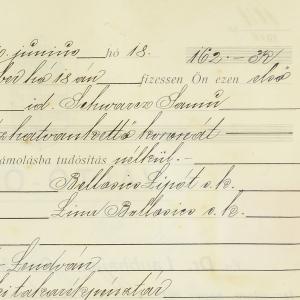 junius hó 18. 162.–
ber hó 18 án fizessen Ön ezen első
id. Schwarcz Samu
zhatvankettő koronát
ámolásba tudósítás nélkül.–
Bellovics Lipót s. k.
Lina Bellovics s. k.
-Lendván
takarékpénztár